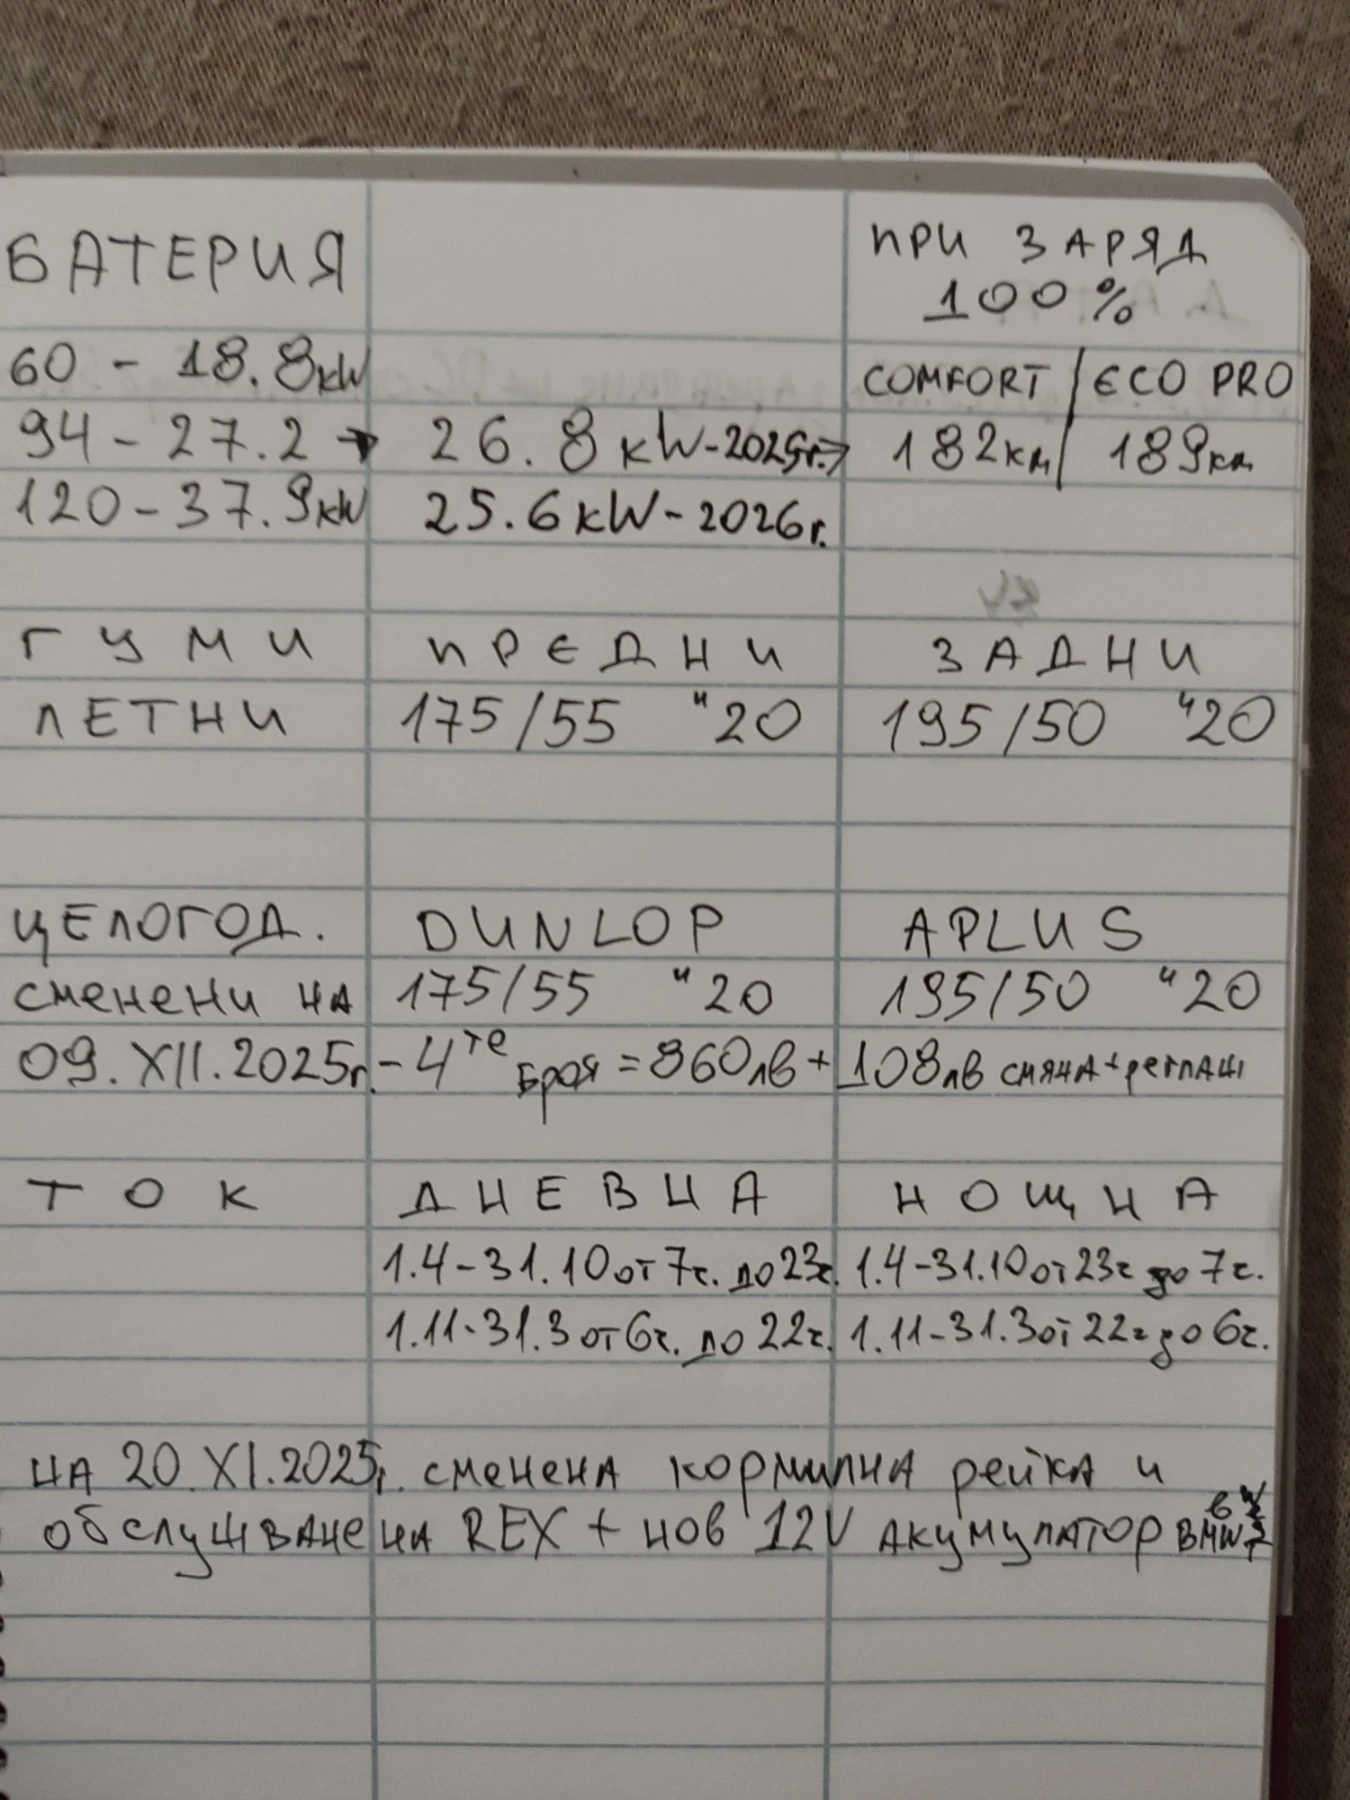 БАТЕРИЯ ПРИ ЗАРЯД
100%
60 - 18.8kW COMFORT / ECO PRO
94 - 27.2 → 26.8 kW-2025г.→ 182км / 189км
120-37.9kW 25.6kW-2026г.
ГУМИ ПРЕДНИ ЗАДНИ
ЛЕТНИ 175/55 "20 195/50 "20
ЦЕЛОГОД. DUNLOP APLUS
сменени на 175/55 "20 195/50 "20
09.XII.2025г. - 4те броя = 860лв + 108лв смяна+реглаж
ТОК ДНЕВНА НОЩНА
1.4-31.10 от 7ч. до 23ч. 1.4-31.10 от 23ч до 7ч.
1.11-31.3 от 6ч. до 22ч. 1.11-31.3 от 22ч до 6ч.
на 20.XI.2025г. сменена кормилна рейка и
обслужване на REX + нов 12V акумулатор в BMW